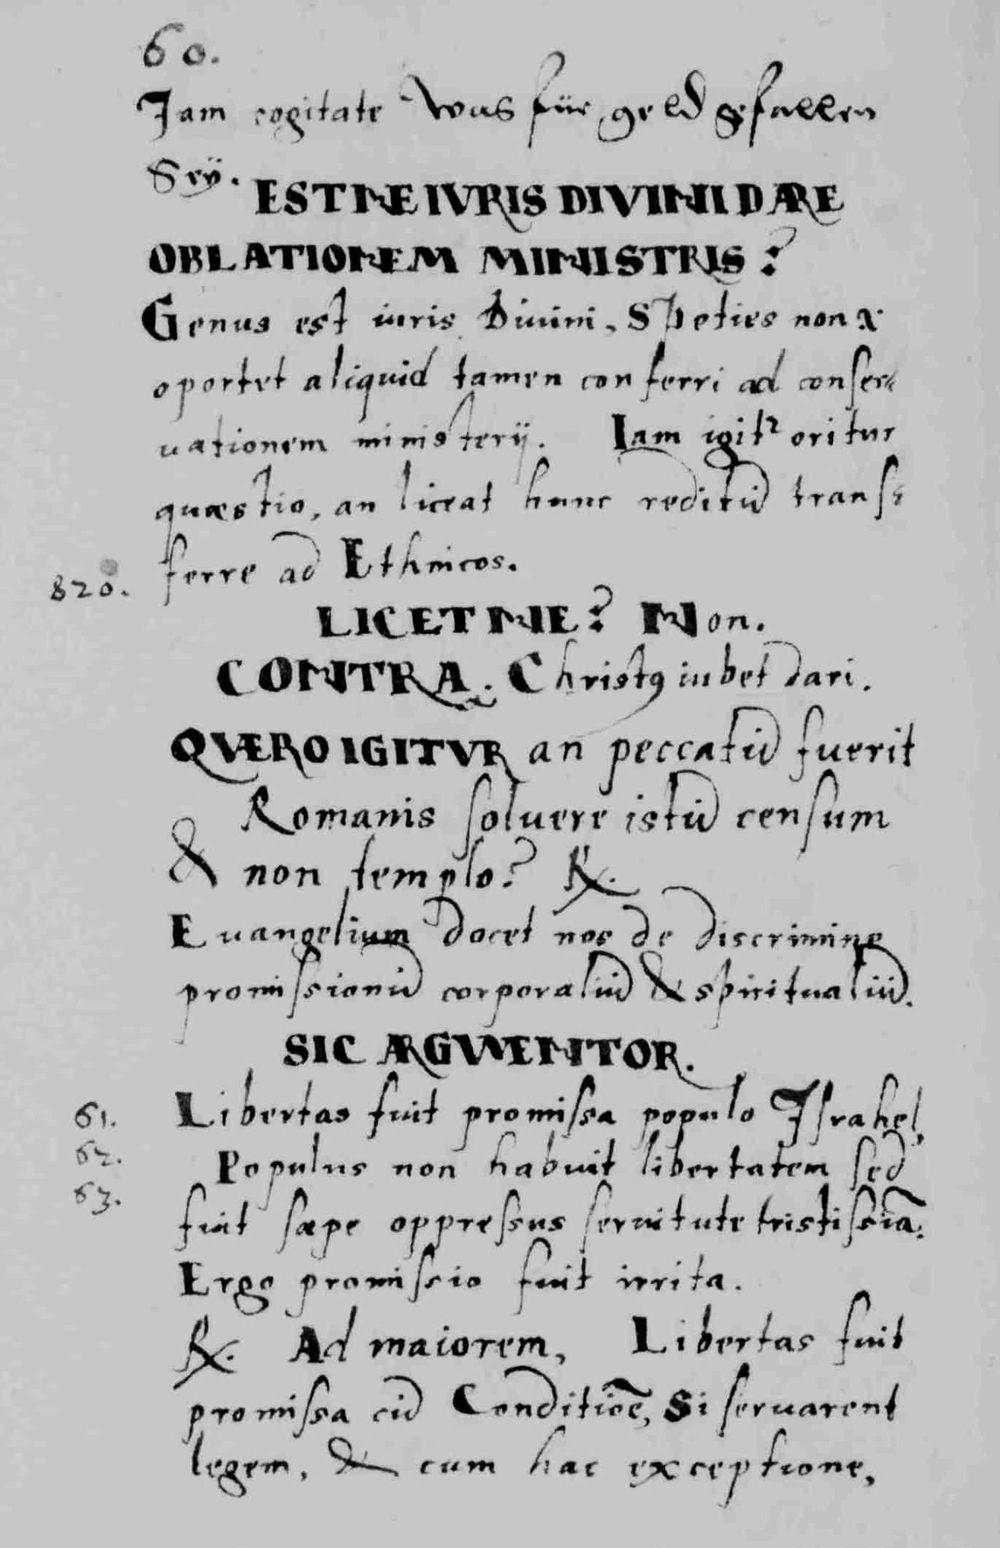 60.
Iam cogitate was für geld gefallen
Seÿ.
ESTNE IVRIS DIVINI DARE
OBLATIONEM MINISTRIS?
Genus est iuris Diuini, Speties non
oportet aliquid tamen conferri ad conser-
uationem ministerij. Iam igitr oritur
quæstio, an liceat hunc reditū trans-
820. ferre ad Ethnicos.
LICETNE? Non.
CONTRA. Christꝯ iubet dari.
QVÆRO IGITVR an peccatū fuerit
Romanis soluere istū censum
& non templo? ℞.
Euangelium docet nos de discrimine
promissionū corporaliū & spiritualiū.
SIC ARGVMENTOR.
61. Libertas fuit promissa populo Israhel,
62. Populus non habuit libertatem sed
63. fuit sæpe oppressus seruitute tristissīa.
Ergo promissio fuit irrita.
℞. Ad maiorem, Libertas fuit
promissa cū Conditiōe, Si seruarent
legem, & cum hac exceptione,